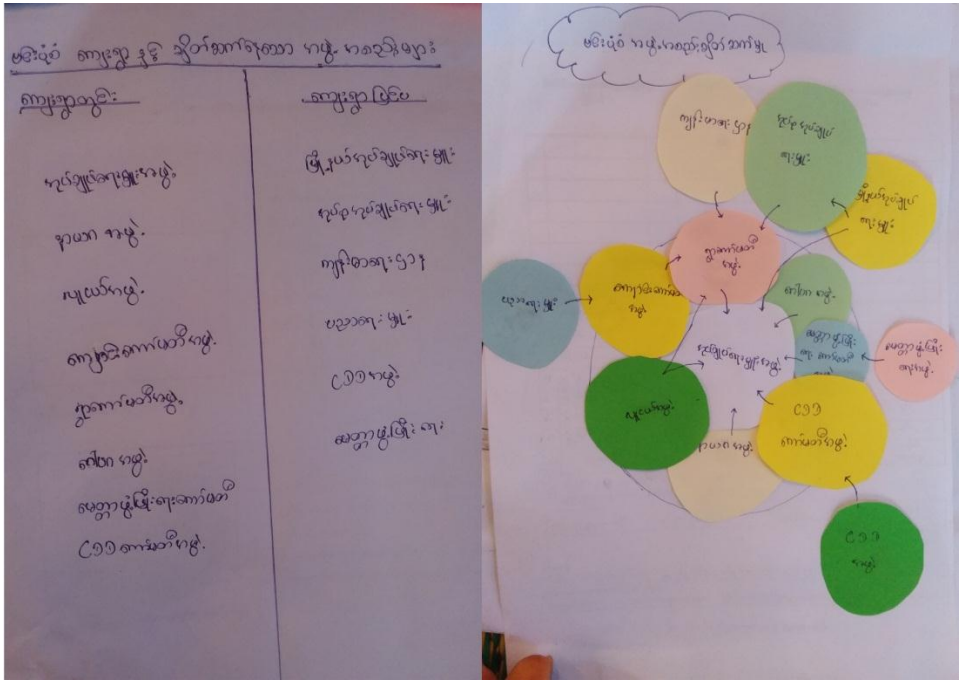 မင်းပုံစံ ကျေးရွာ နှင့် ချိတ်ဆက်နေသော အဖွဲ့ အစည်းများ
ကျေးရွာတွင်း
အုပ်ချုပ်ရေးမှူးအဖွဲ့
နာယက အဖွဲ့
လူငယ်အဖွဲ့
ကျောင်းကော်မတီအဖွဲ့
ရွာကော်မတီအဖွဲ့
မေတ္တာဖွံ့ဖြိုးရေးကော်မတီ
CDD ကော်မတီအဖွဲ့
ကျေးရွာပြင်ပ
မြို့နယ်အုပ်ချုပ်ရေးမှူး
အုပ်စုအုပ်ချုပ်ရေးမှူး
ကျန်းမာရေးဌာန
ပညာရေးမှူး
CDD အဖွဲ့
မေတ္တာဖွံ့ဖြိုးရေး
မင်းပုံစံ အဖွဲ့အစည်းချိတ်ဆက်မှု
ကျန်းမာရေးဌာန
အုပ်စုအုပ်ချုပ်
ရေးမှူး
မြို့နယ်အုပ်ချုပ်
ရေးမှူး
ရွာကော်မတီ
အဖွဲ့
ပညာရေးမှူး
ကျောင်းကော်မတီ
အဖွဲ့
မေတ္တာဖွံ့ဖြိုး
ရေးကော်မတီ
အဖွဲ့
မေတ္တာဖွံ့ဖြိုး
ရေးအဖွဲ့
အုပ်ချုပ်ရေးမှူးအဖွဲ့
လူငယ်အဖွဲ့
CDD
ကော်မတီအဖွဲ့
နာယက အဖွဲ့
CDD
အဖွဲ့